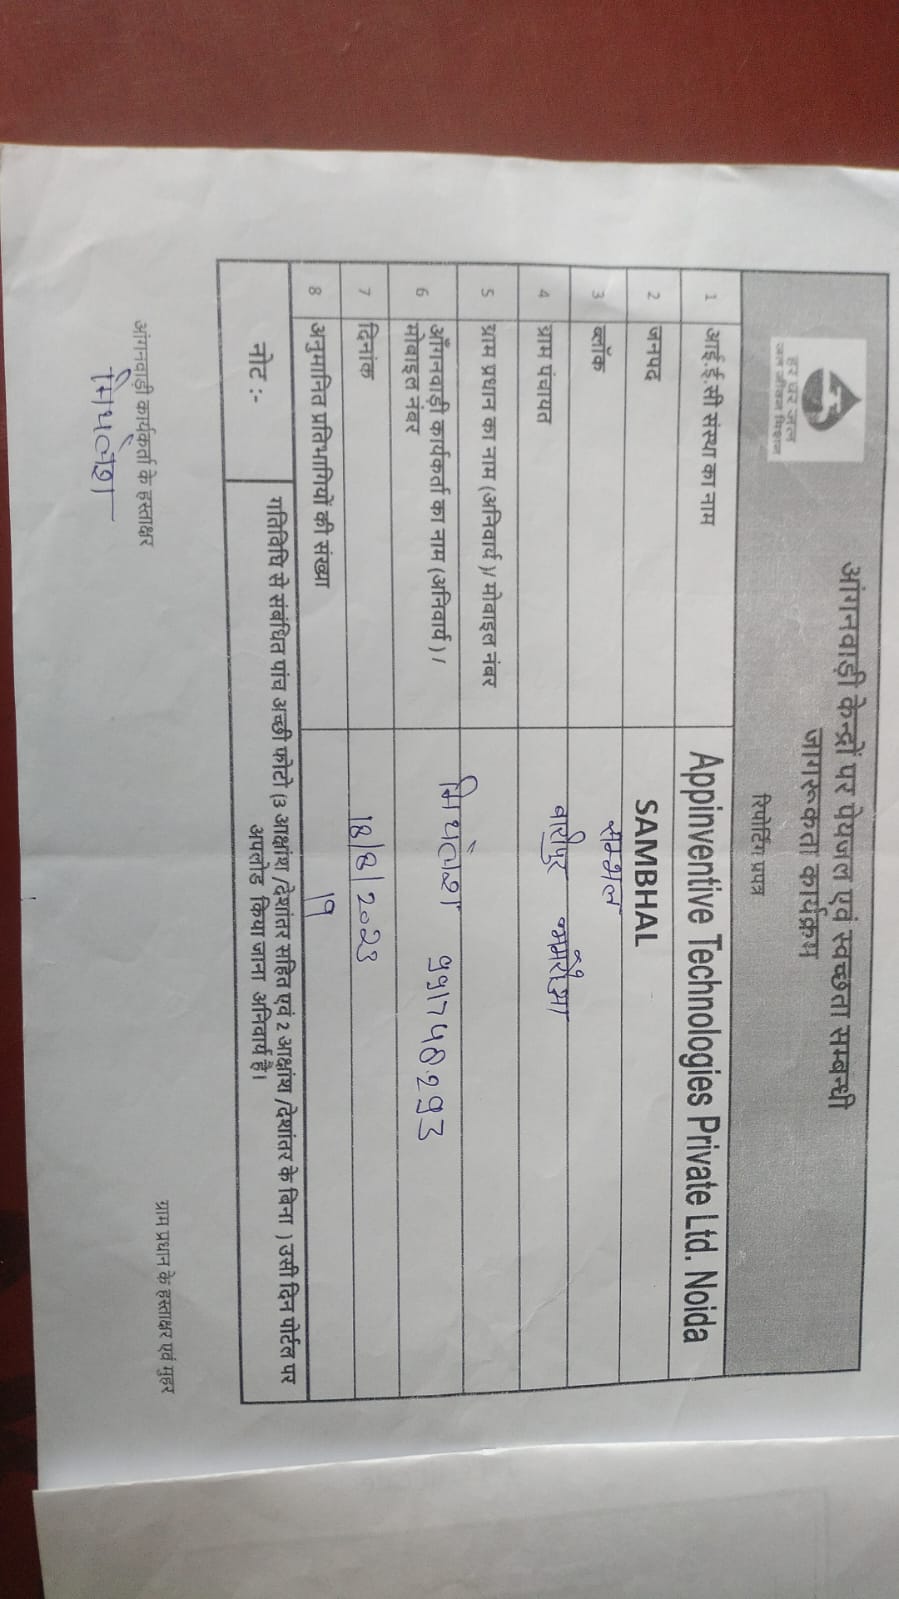 हर घर जल
जल जीवन मिशन
आंगनवाड़ी केन्द्रों पर पेयजल एवं स्वच्छता सम्बन्धी
जागरूकता कार्यक्रम
रिपोर्टिंग प्रपत्र
1 आई.ई.सी संस्था का नाम Appinventive Technologies Private Ltd. Noida
2 जनपद SAMBHAL
3 ब्लॉक सम्भल
4 ग्राम पंचायत
5 ग्राम प्रधान का नाम (अनिवार्य)/ मोबाइल नंबर
6 आँगनवाड़ी कार्यकर्ता का नाम (अनिवार्य) / मिथलेश
मोबाइल नंबर
7 दिनांक 18/8/2023
8 अनुमानित प्रतिभागियों की संख्या 19
नोट :- गतिविधि से संबंधित पांच अच्छी फोटो (3 आक्षांश /देशांतर सहित एवं 2 आक्षांश /देशांतर के बिना ) उसी दिन पोर्टल पर
अपलोड किया जाना अनिवार्य है।
आंगनवाड़ी कार्यकर्ता के हस्ताक्षर ग्राम प्रधान के हस्ताक्षर एवं मुहर
मिथलेश